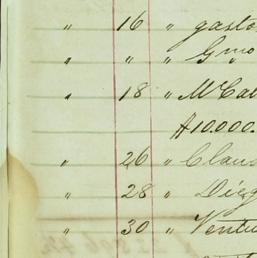 " 16 " gasto
" " " Gmo
" 18 " McCal
$10.000.
" 26 " Claus
" 28 " Dieg
" 30 " Ventu